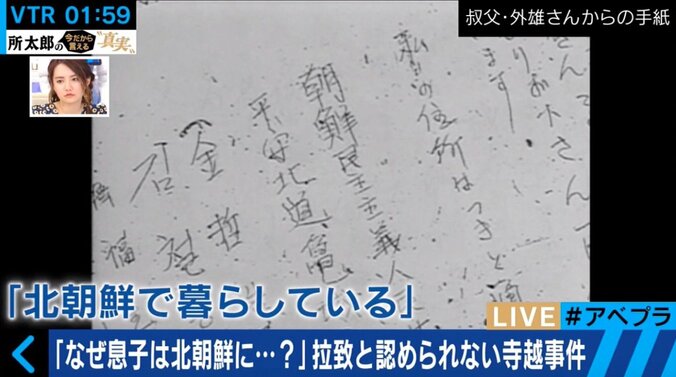 VTR 01:59
所太郎の今だから言える"真実"
叔父・外雄さんからの手紙
さんで
ます
私の住所はつきと通
朝鮮民主主義人
平安北道亀
金哲
福
「北朝鮮で暮らしている」
LIVE #アベプラ
「なぜ息子は北朝鮮に…?」拉致と認められない寺越事件